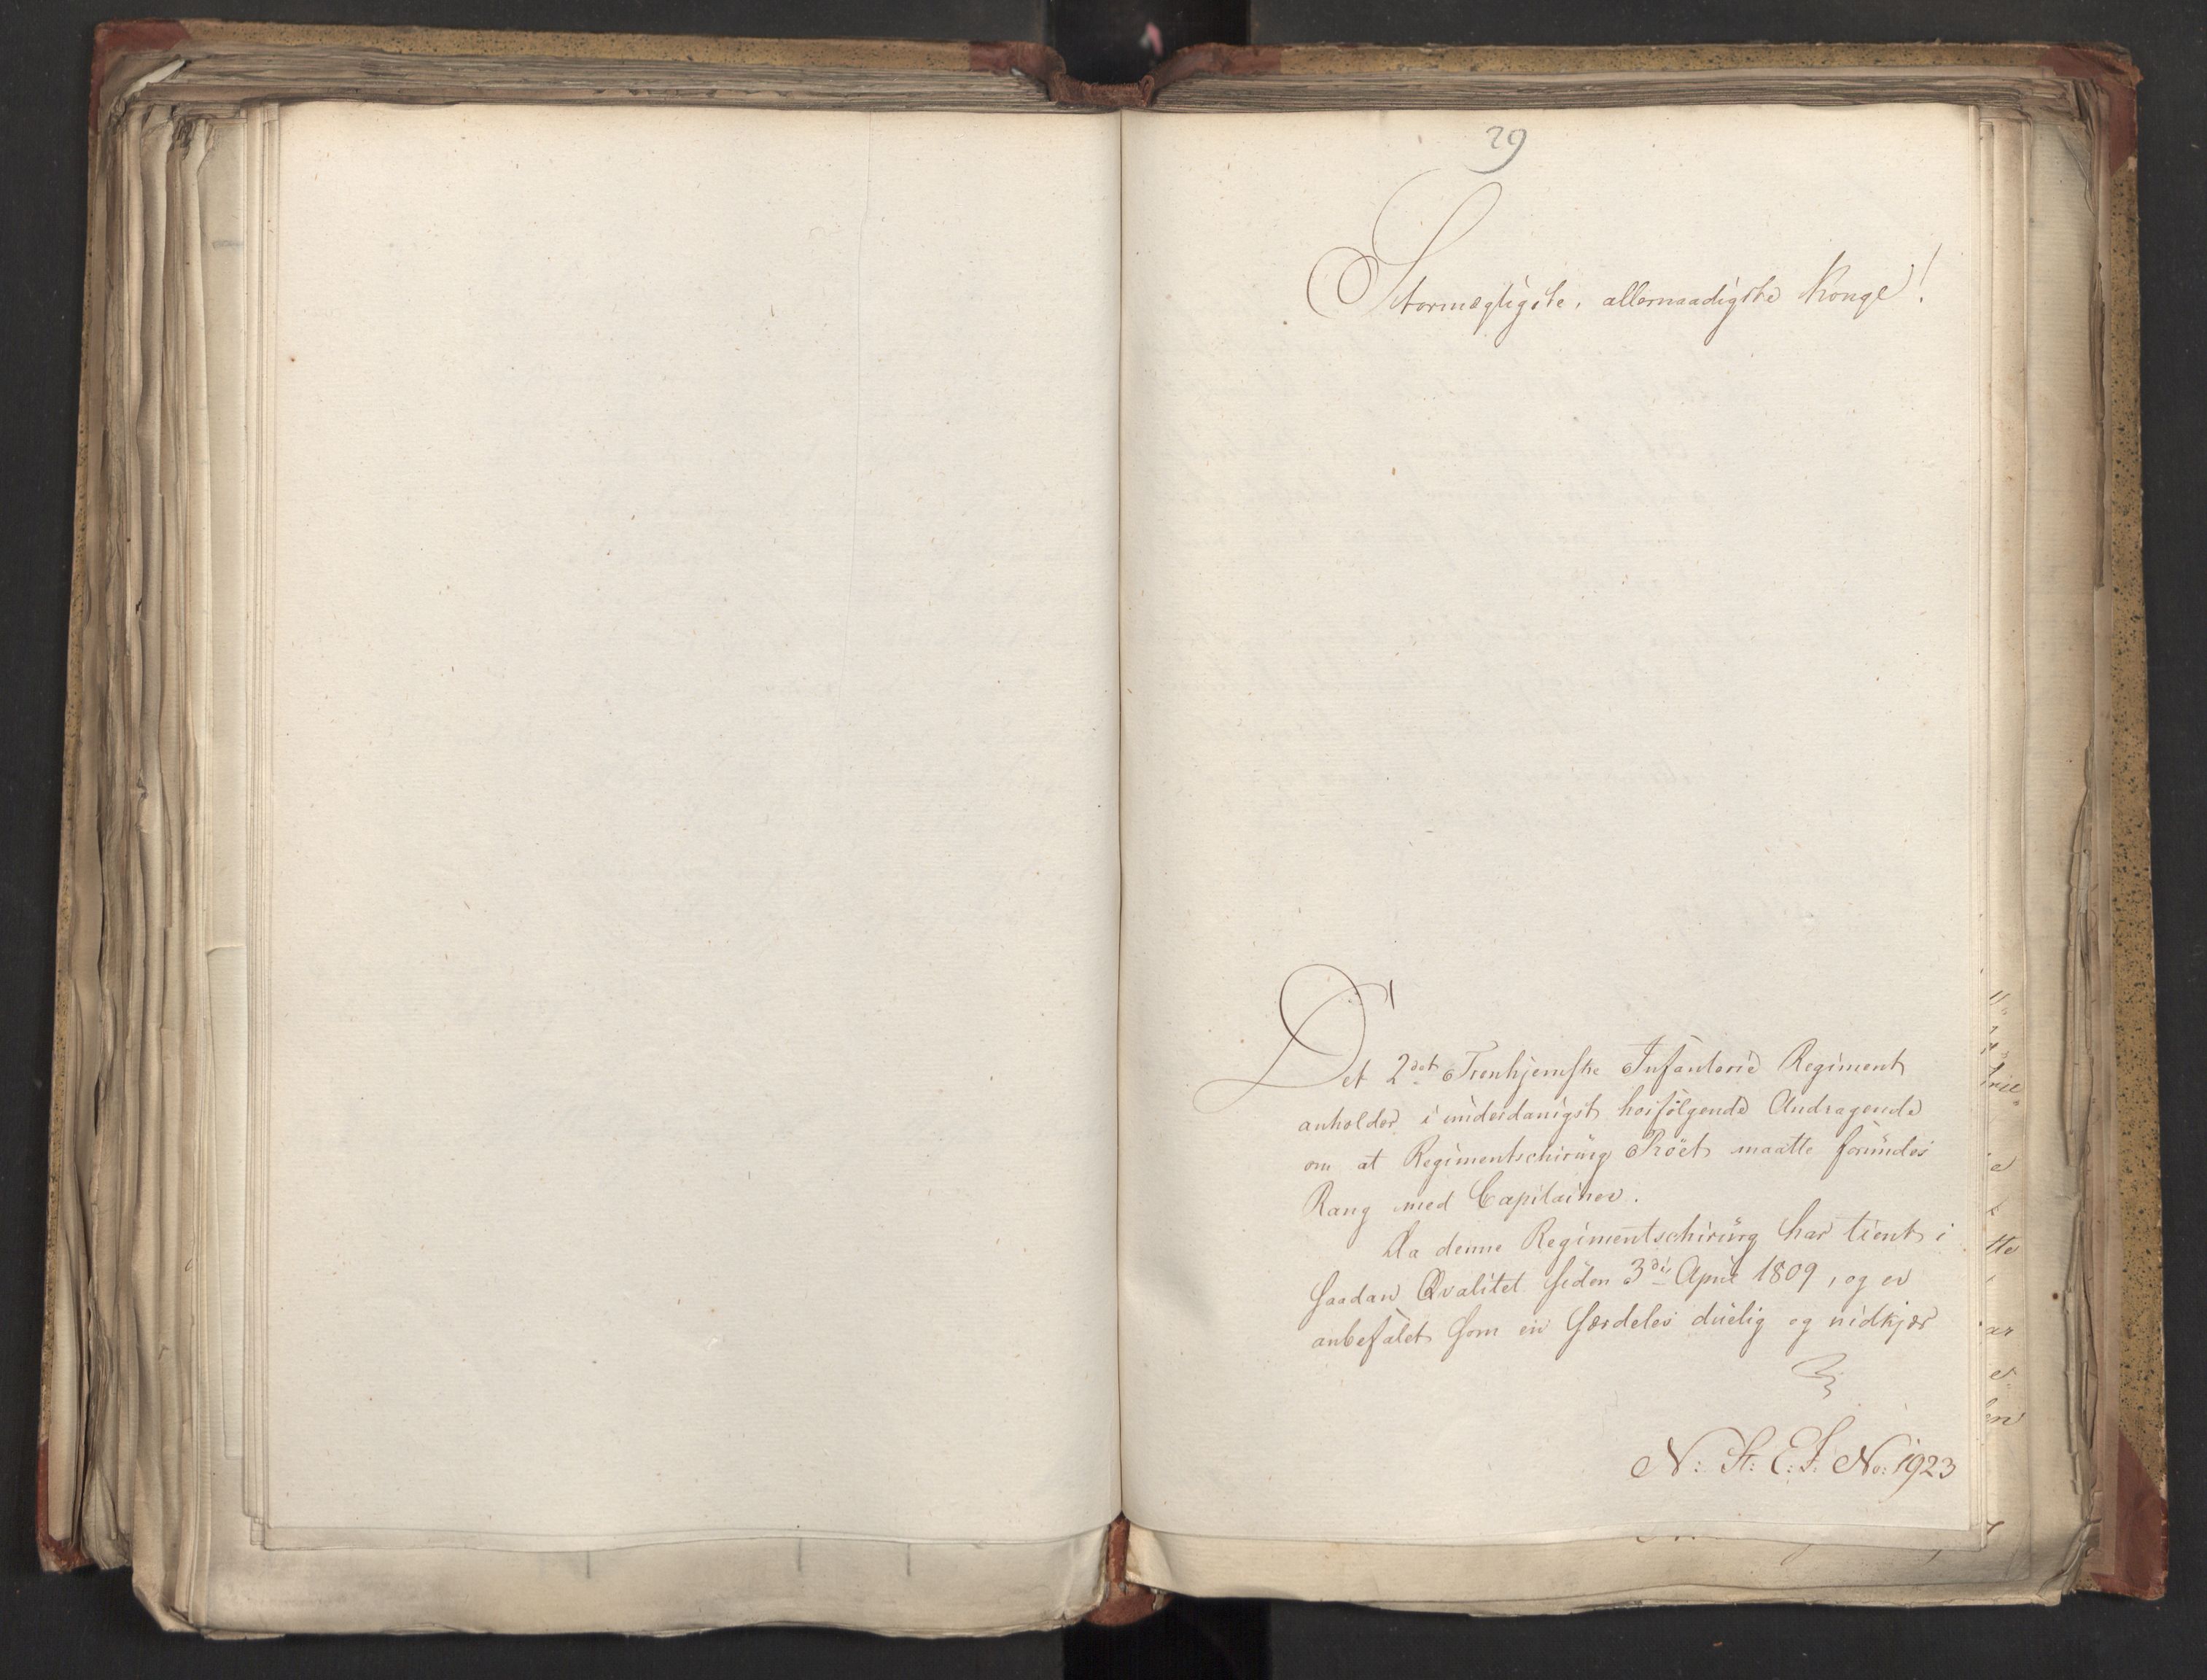 29
Stormægtigste, allernaadigste Konge!
Det 2det Tronhjemske Infanterie Regiment
anholder i underdanigst hosfølgende Andragende
om at Regimentschirurg maatte forundes
Rang med Capitainer.
Da denne Regimentschirurg har tient i
saadan Qvalitet siden 3die April 1809, og er
anbefalet som en særdeles duelig og nidkjær
N: St: E: S: No: 1923